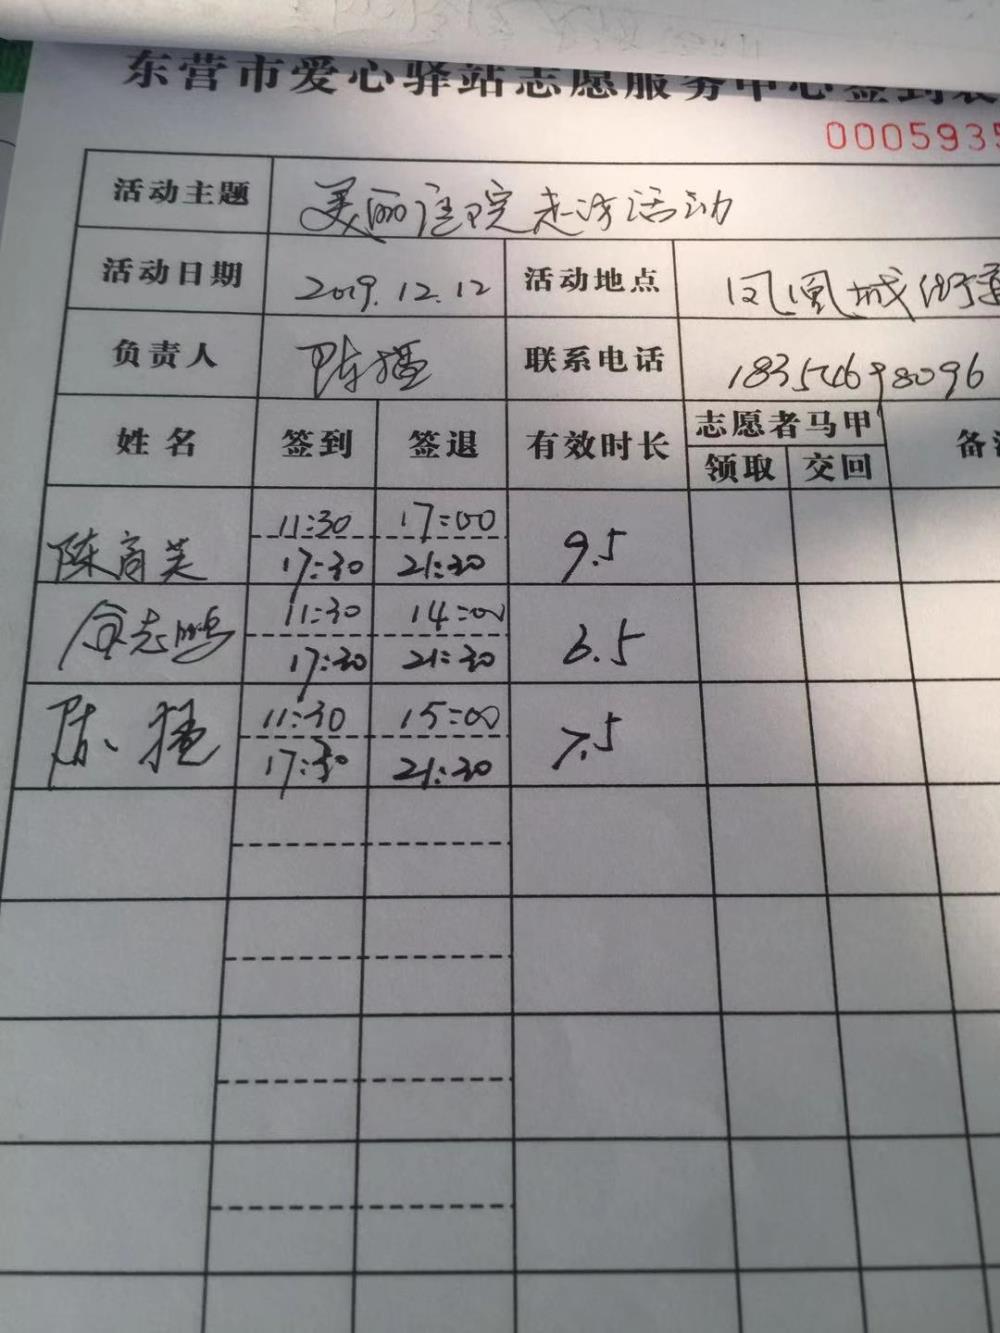 东营市爱心驿站志愿服务中心签到表
0005935
活动主题 美丽庭院走访活动
活动日期 2019.12.12 活动地点 凤凰城街
负责人 陈 联系电话 18354698096
姓名 签到 签退 有效时长 志愿者马甲 备注
领取 交回
11:30 17:00
陈 17:30 21:30 9.5
11:30 14:00
志鹏 17:30 21:30 6.5
陈 11:30 15:00
17:30 21:30 7.5